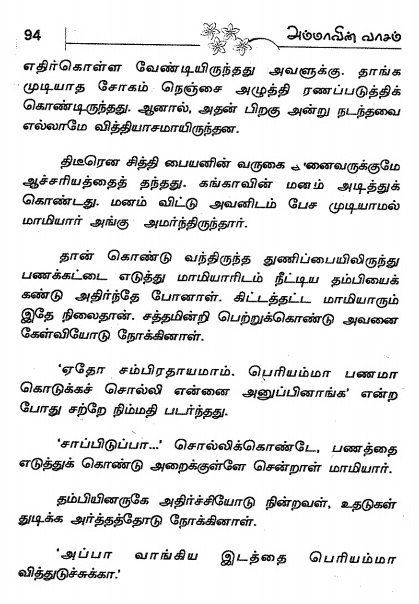 94
அம்மாவின் வாசம்
எதிர்கொள்ள வேண்டியிருந்தது அவளுக்கு. தாங்க
முடியாத சோகம் நெஞ்சை அழுத்தி ரணப்படுத்திக்
கொண்டிருந்தது. ஆனால், அதன் பிறகு அன்று நடந்தவை
எல்லாமே வித்தியாசமாயிருந்தன.
திடீரென சித்தி பையனின் வருகை னைவருக்குமே
ஆச்சரியத்தைத் தந்தது. கங்காவின் மனம் அடித்துக்
கொண்டது. மனம் விட்டு அவனிடம் பேச முடியாமல்
மாமியார் அங்கு அமர்ந்திருந்தார்.
தான் கொண்டு வந்திருந்த துணிப்பையிலிருந்து
பணக்கட்டை எடுத்து மாமியாரிடம் நீட்டிய தம்பியைக்
கண்டு அதிர்ந்தே போனாள். கிட்டத்தட்ட மாமியாரும்
இதே நிலைதான். சத்தமின்றி பெற்றுக்கொண்டு அவனை
கேள்வியோடு நோக்கினாள்.
'ஏதோ சம்பிரதாயமாம். பெரியம்மா பணமா
கொடுக்கச் சொல்லி என்னை அனுப்பினாங்க' என்ற
போது சற்றே நிம்மதி படர்ந்தது.
'சாப்பிடுப்பா...' சொல்லிக்கொண்டே, பணத்தை
எடுத்துக் கொண்டு அறைக்குள்ளே சென்றாள் மாமியார்.
தம்பியினருகே அதிர்ச்சியோடு நின்றவள், உதடுகள்
துடிக்க அர்த்தத்தோடு நோக்கினாள்.
'அப்பா வாங்கிய இடத்தை பெரியம்மா
வித்துடுச்சுக்கா.'